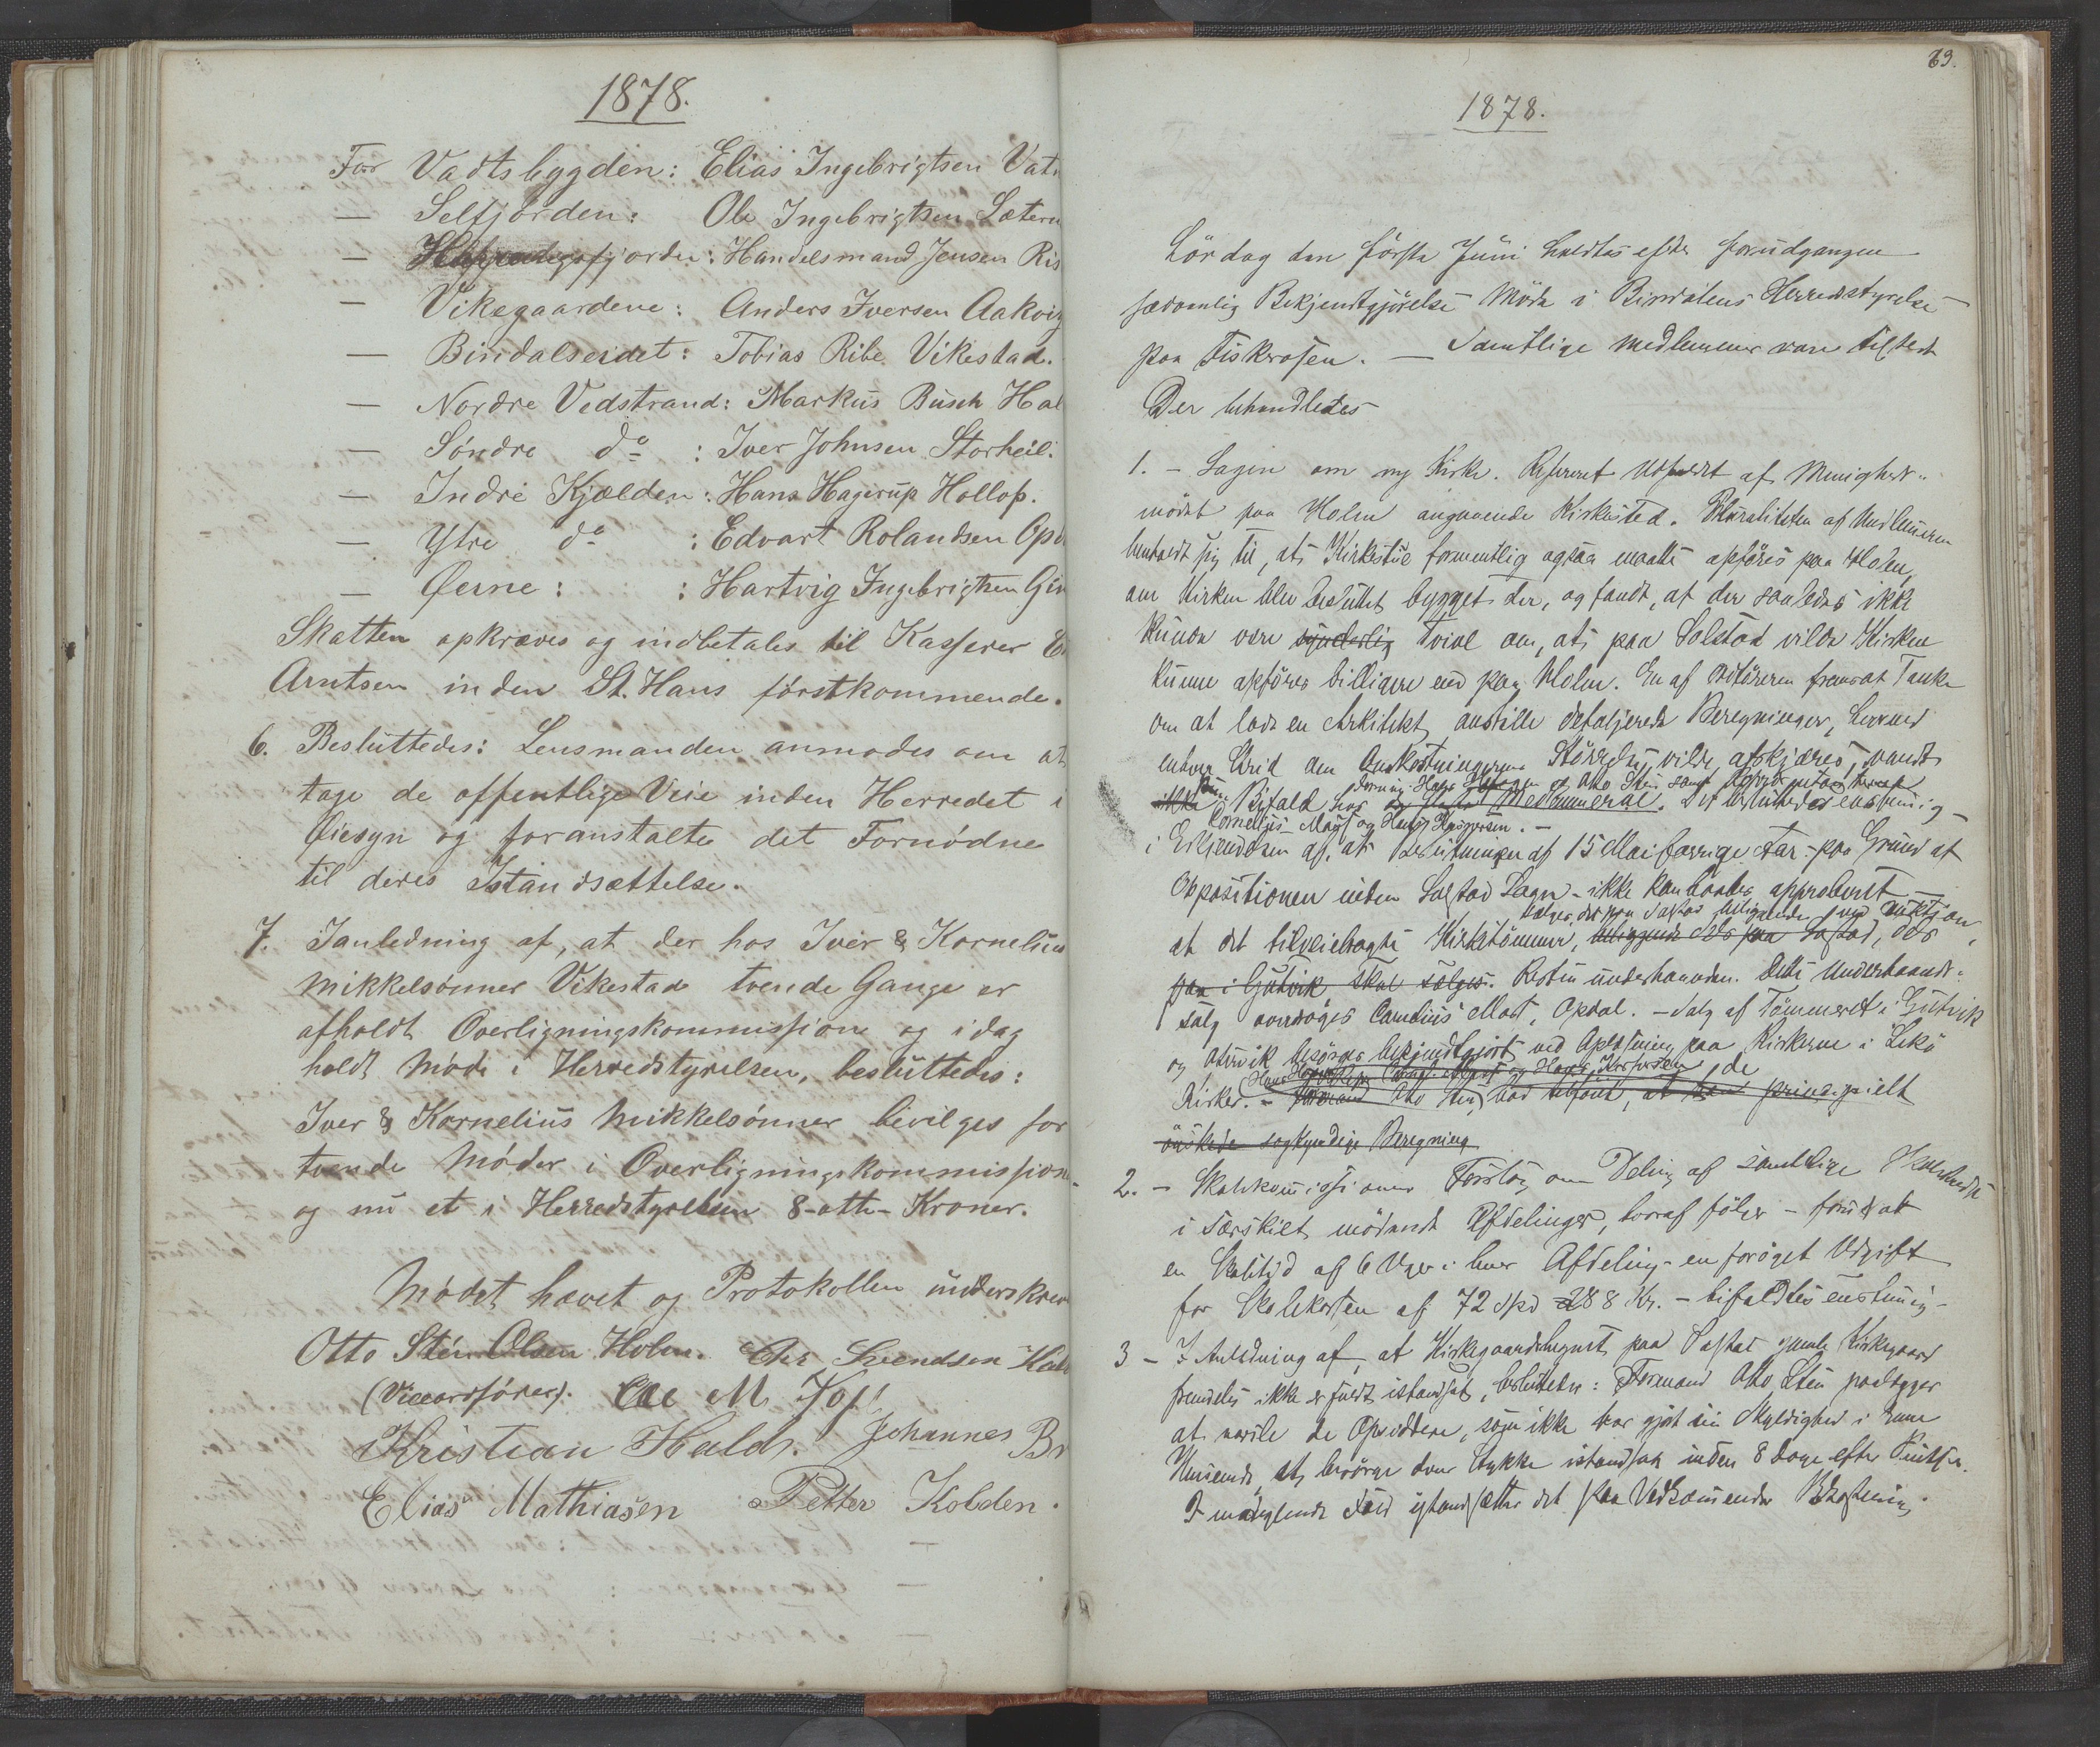 1878.
For Vadtsbygden: Elias Ingebrigtsen Vat
— Selfjorden: Ole Ingebrigtsen Sætern
— fjorden: Handelsmand Jensen Ris
— Vikegaardene: Anders Iversen Aakvig
— Bindalseidet: Tobias Ribe Vikestad.
— Nordre Vedstrand: Markus Busch Hal
— Søndre do : Iver Johnsen Storheil.
— Indre Kjælden: Hans Hagerup Hollop.
— Ytre do : Edvart Rolandsen Opd
— Øerne: : Hartvig Ingebrigtsen
Skatten opkræves og indbetales til Kasserer
Arntsen inden St. Hans førstkommende.
6. Besluttedes: Lensmanden anmodes om at
tage de offentlige Veie inden Herredet i
Øiesyn og foranstalte det Fornødne
til deres Istandsættelse.
7. Ianledning af, at der hos Iver & Kornelius
Mikkelsønner Vikestad tvende Gange er
afholdt Overligningskommission og idag
holdt Møde i Herredstyrelsen, besluttedes:
Iver & Kornelius Mikkelsønner bevilges for
tvende Møder i Overligningskommission
og nu et i Herredstyrelsen 8-otte- Kroner.
Mødet hævet og Protokollen underskrev
Otto Stén Olsen Holm. Chr Svendsen
(Viceordfører). Ole M. Kop
Kristian Hald. Johannes
Elias Mathiasen Petter Kolden.
69.
1878.
Lördag den förste Juni holdtes efter forudgangen
sædvanlig Bekjendtgjörelse Möde i Bindalens Herredsstyrelse
paa Fiskerosen. — Samtlige Medlemmer vare tilstede
Der behandledes
1. - Sagen om ny Kirke. Refereret Udfaldet af Menigheds-
mödet paa Holm angaaende Kirkested. Pluraliteten af Medlemmerne
henholdt sig til, at Kirkestue formentlig ogsaa maatte opföres paa Holm,
om Kirken blev besluttet bygget der, og fandt, at der saaledes ikke
kunde være synderlig Tvivl om, at paa Solstad vilde Kirken
kunne opföres billigere end paa Holm. En af fremsat Tanke
om at lade en Arkitekt anstille detaljerede Beregninger, hvorved
enhver Strid om Omkostningernes Störrelse vilde afskjæres, vandt
ikke Bifald hos Otto Sten samt
Medlemmerne. Det besluttedes enstemmig
Kornelius og Hans
i Erkjendelsen af, at Beslutningen af 15 Mai forrige Aar - paa Grund af
Oppositionen inden Solstad Sogn - ikke kan haabes approberet -
sælges det paa Solstad beliggende ved Auktion,
at det tilveiebragte Kirketömmer, beliggende dels paa Solstad, dels
paa i Gutvik skal sælges. Resten underhaanden. Dette Underhaands-
salg overdrages Cornelius Opdal. - Salg af Tömmeret i Gutvik
og besörges bekjendtgjort ved Oplæsning paa Kirkerne i Lekö
Kirker. - Otto Sten bad tilfört, at principielt
önskede sagkyndige Beregning
2. - Skolekommissionens Forslag om Deling af samtlige Skolekredse
i særskilt mödende Afdelinger, hvoraf fölger - forudsat
en Skoletid af 6 Uger i hver Afdeling - en foröget Udgift
for Skolekassen af 72 Spd 288 Kr. - bifaldtes enstemmig -
3 - I Anledning af, at Kirkegaardshegnet paa Solstad gamle Kirkegaard
fremdeles ikke er fuldt istandsat, besluttedes: Formand Otto Sten paalægges
at varsle de Opsiddere, som ikke har gjort sin Skyldighed i denne
Henseende, at besörge deres Stykke istandsat inden 8 Dage efter Pintse.
I manglende Fald istandsættes det paa Vedkommendes Bekostning.